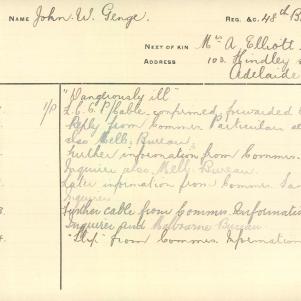 NAME John W. Genge. REG. &C. 48th B
NEXT OF KIN Mrs A. Elliott
ADDRESS 103. Hindley
Adelaide
"Dangerously ill"
I/P L.C.C.P/Cable confirmed, forwarded
Reply from Commer Particulars
also Melb. Bureau.
Further information from Commer.
Inquirer also Melb. Bureau.
Later information from Commer.
Inquirer
3. Further cable from Commer. Informati
Inquirer and Melbourne Bureau
4. from Commer Information